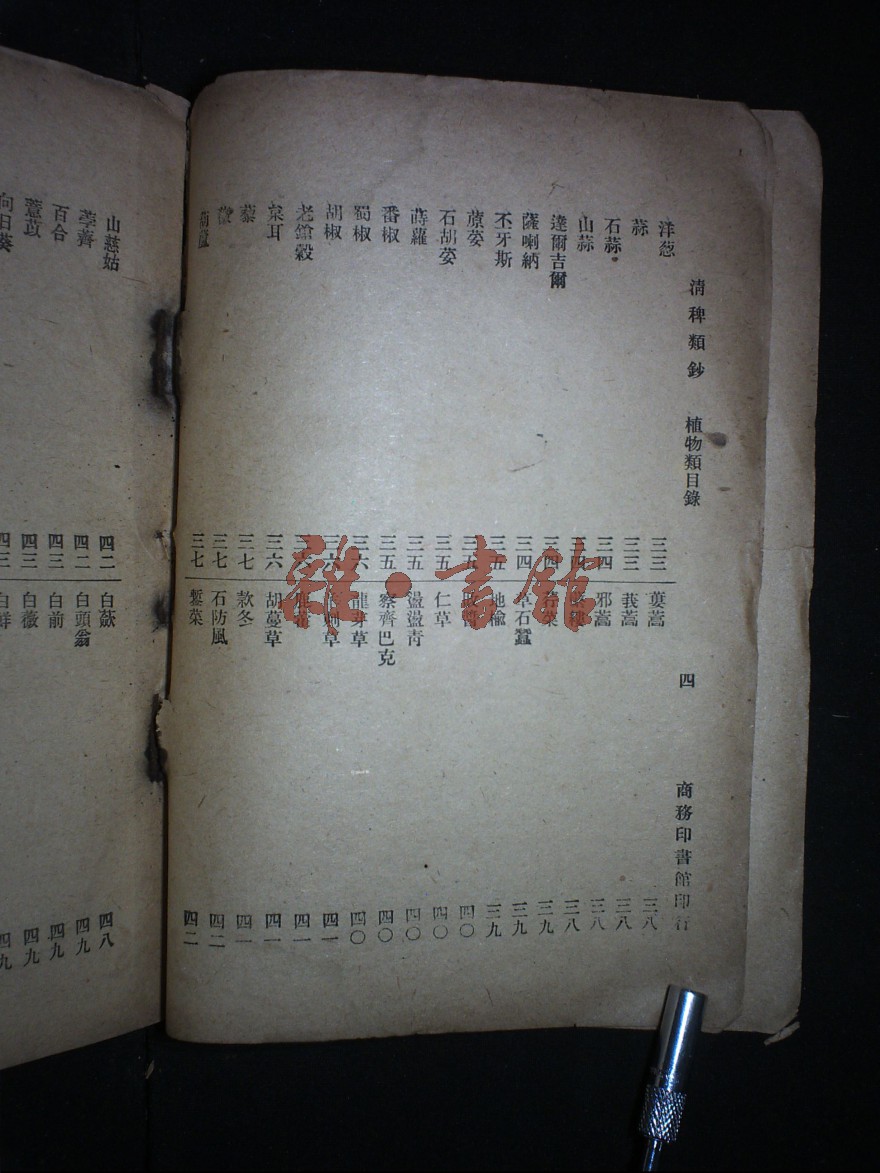 清稗類鈔 植物類目錄 四 商務印書館印行
洋葱 三三
蒜 三三
石蒜 三四
山蒜
達爾吉爾 三四
薩喇納 三四
丕牙斯 三五
蔊荽
石胡荽 三五
蒔蘿 三五
番椒 三五
蜀椒 三六
胡椒 三六
老鎗穀
枲耳 三六
藜 三七
三七
三七
蔞蒿 三八
莪蒿 三八
邪蒿 三八
三八
菜 三九
草石蠶 三九
地楡 三九
四〇
仁草 四〇
盪盪靑 四〇
察齊巴克 四〇
龍芽草 四〇
草 四一
四一
胡蔓草 四一
款冬 四一
石防風 四二
蔾菜 四二
山慈姑 四二
荸薺 四二
百合 四三
薏苡 四三
向日葵 四三
白蘞 四八
白頭翁 四九
白前 四九
白薇 四九
白鮮 四九
雜·書館